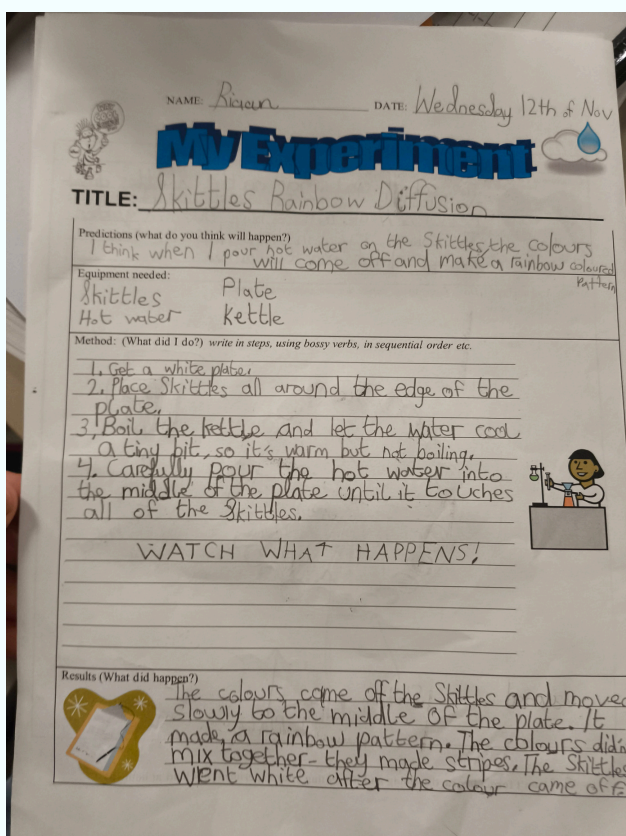 NAME: Riaan DATE: Wednesday 12th of Nov
My Experiment
TITLE: Skittles Rainbow Diffusion
Predictions (what do you think will happen?)
I think when I pour hot water on the Skittles, the colours
will come off and make a rainbow coloured
pattern
Equipment needed:
Skittles Plate
Hot water Kettle
Method: (What did I do?) write in steps, using bossy verbs, in sequential order etc.
1. Get a white plate.
2. Place Skittles all around the edge of the
plate.
3. Boil the kettle and let the water cool
a tiny bit, so it's warm but not boiling.
4. Carefully pour the hot water into
the middle of the plate until it touches
all of the Skittles.
WATCH WHAT HAPPENS!
Results (What did happen?)
The colours come off the Skittles and moved
slowly to the middle of the plate. It
made a rainbow pattern. The colours didn
mix together - they made stripes. The Skittles
went white after the colour came off.